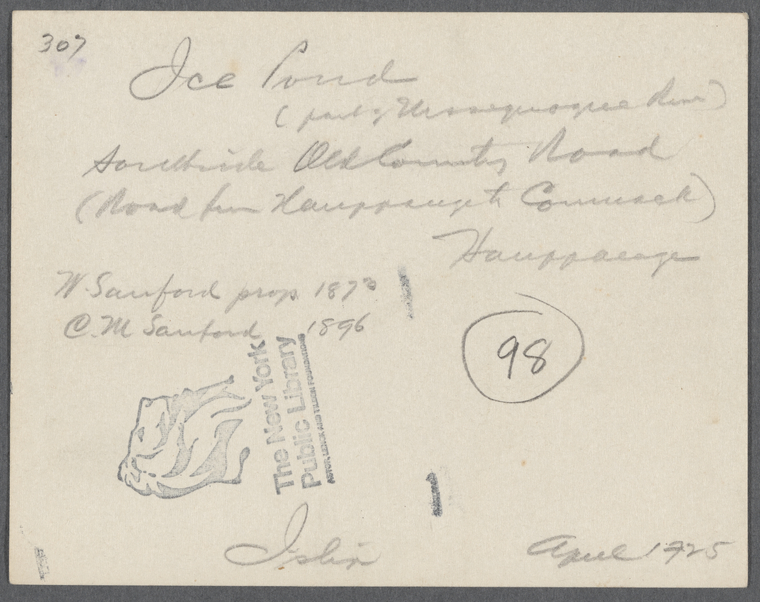 307
Ice Pond
(part of Nissequogue River)
Southside Old Country Road
(Road from Hauppauge to Commack)
Hauppauge
W. Sanford prop 1873
C. M Sanford 1896
98
The New York
Public Library
ASTOR, LENOX AND TILDEN FOUNDATIONS
Islip
April 1925